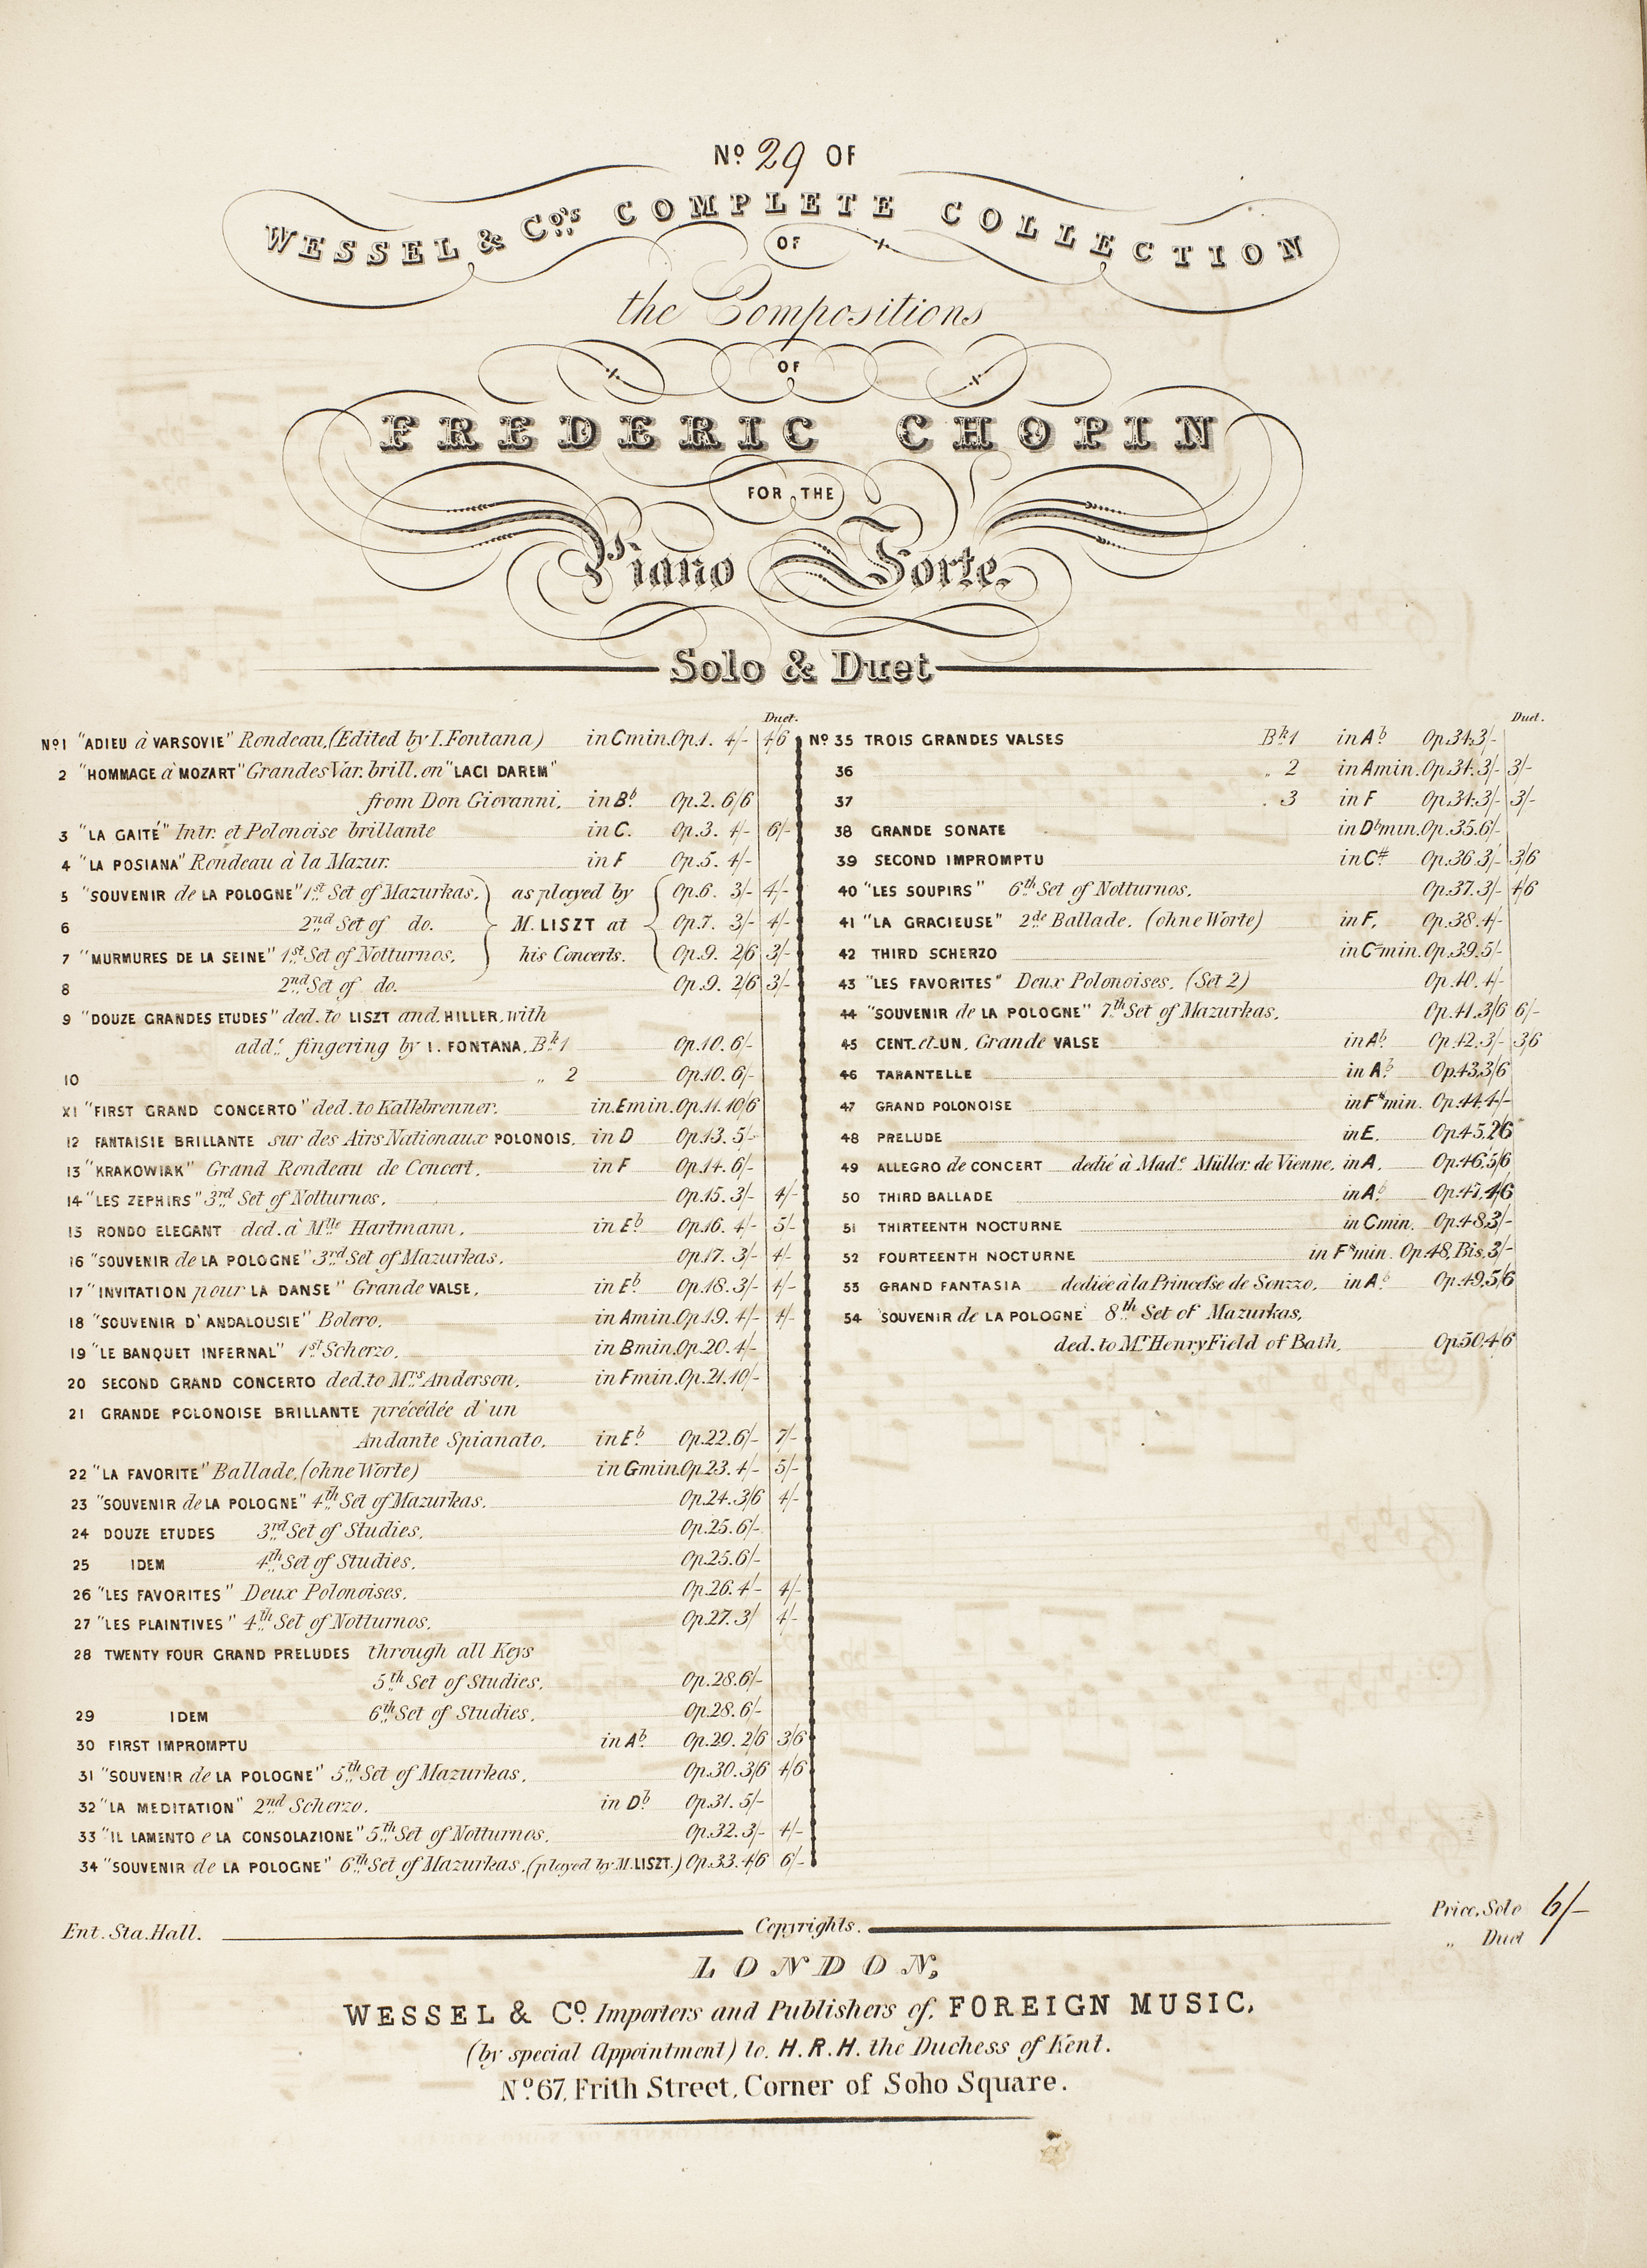 Nº 29 OF
WESSEL & Cº's COMPLETE COLLECTION
OF
the Compositions
OF
FREDERIC CHOPIN
FOR THE
Piano Forte.
Solo & Duet
Duet.
Nº 1 "ADIEU à VARSOVIE" Rondeau, (Edited by I. Fontana) in C min. Op. 1. 4/- 4/6
2 "HOMMAGE à MOZART" Grandes Var. brill. on "LACI DAREM"
from Don Giovanni, in B♭ Op. 2. 6/6
3 "LA GAITÉ" Intr. et Polonoise brillante in C. Op. 3. 4/- 6/-
4 "LA POSIANA" Rondeau à la Mazur. in F Op. 5. 4/-
5 "SOUVENIR de LA POLOGNE" 1st Set of Mazurkas, as played by Op. 6. 3/- 4/-
6 2nd Set of do. M. LISZT at Op. 7. 3/- 4/-
7 "MURMURES DE LA SEINE" 1st Set of Notturnos, his Concerts. Op. 9. 2/6 3/-
8 2nd Set of do. Op. 9. 2/6 3/-
9 "DOUZE GRANDES ETUDES" ded. to LISZT and HILLER, with
add! fingering by I. FONTANA, Bk 1 Op. 10. 6/-
10 " 2 Op. 10. 6/-
XI "FIRST GRAND CONCERTO" ded. to Kalkbrenner. in E min. Op. 11. 10/6
12 FANTAISIE BRILLANTE sur des Airs Nationaux POLONOIS, in D Op. 13. 5/-
13 "KRAKOWIAK" Grand Rondeau de Concert, in F Op. 14. 6/-
14 "LES ZEPHIRS" 3rd Set of Notturnos, Op. 15. 3/- 4/-
15 RONDO ELEGANT ded. à Mlle Hartmann, in E♭ Op. 16. 4/- 5/-
16 "SOUVENIR de LA POLOGNE" 3rd Set of Mazurkas, Op. 17. 3/- 4/-
17 "INVITATION pour LA DANSE" Grande VALSE, in E♭ Op. 18. 3/- 4/-
18 "SOUVENIR D'ANDALOUSIE" Bolero, in A min. Op. 19. 4/- 4/-
19 "LE BANQUET INFERNAL" 1st Scherzo, in B min. Op. 20. 4/-
20 SECOND GRAND CONCERTO ded. to Mrs Anderson, in F min. Op. 21. 10/-
21 GRANDE POLONOISE BRILLANTE précédée d'un
Andante Spianato, in E♭ Op. 22. 6/- 7/-
22 "LA FAVORITE" Ballade, (ohne Worte) in G min. Op. 23. 4/- 5/-
23 "SOUVENIR de LA POLOGNE" 4th Set of Mazurkas, Op. 24. 3/6 4/-
24 DOUZE ETUDES 3rd Set of Studies, Op. 25. 6/-
25 IDEM 4th Set of Studies, Op. 25. 6/-
26 "LES FAVORITES" Deux Polonoises, Op. 26. 4/- 4/-
27 "LES PLAINTIVES" 4th Set of Notturnos, Op. 27. 3/ 4/-
28 TWENTY FOUR GRAND PRELUDES through all Keys
5th Set of Studies, Op. 28. 6/-
29 IDEM 6th Set of Studies, Op. 28. 6/-
30 FIRST IMPROMPTU in A♭ Op. 29. 2/6 3/6
31 "SOUVENIR de LA POLOGNE" 5th Set of Mazurkas, Op. 30. 3/6 4/6
32 "LA MEDITATION" 2nd Scherzo, in D♭ Op. 31. 5/-
33 "IL LAMENTO e LA CONSOLAZIONE" 5th Set of Notturnos, Op. 32. 3/- 4/-
34 "SOUVENIR de LA POLOGNE" 6th Set of Mazurkas, (played by M. LISZT.) Op. 33. 4/6 6/-
Duet.
Nº 35 TROIS GRANDES VALSES Bk 1 in A♭ Op. 34. 3/-
36 " 2 in A min. Op. 34. 3/- 3/-
37 " 3 in F Op. 34. 3/- 3/-
38 GRANDE SONATE in D♭ min. Op. 35. 6/-
39 SECOND IMPROMPTU in C# Op. 36. 3/- 3/6
40 "LES SOUPIRS" 6th Set of Notturnos, Op. 37. 3/- 4/6
41 "LA GRACIEUSE" 2de Ballade, (ohne Worte) in F, Op. 38. 4/-
42 THIRD SCHERZO in C# min. Op. 39. 5/-
43 "LES FAVORITES" Deux Polonoises, (Set 2) Op. 40. 4/-
44 "SOUVENIR de LA POLOGNE" 7th Set of Mazurkas, Op. 41. 3/6 6/-
45 CENT-et-UN, Grande VALSE in A♭ Op. 42. 3/- 3/6
46 TARANTELLE in A♭ Op. 43. 3/6
47 GRAND POLONOISE in F# min. Op. 44. 4/-
48 PRELUDE in E. Op. 45. 2/6
49 ALLEGRO de CONCERT dedié à Made Müller de Vienne, in A, Op. 46. 5/6
50 THIRD BALLADE in A♭ Op. 47. 4/6
51 THIRTEENTH NOCTURNE in C min. Op. 48. 3/-
52 FOURTEENTH NOCTURNE in F# min. Op. 48, Bis, 3/-
53 GRAND FANTASIA dediée à la Princesse de Sonzzo, in A♭ Op. 49. 5/6
54 "SOUVENIR de LA POLOGNE" 8th Set of Mazurkas,
ded. to Mr Henry Field of Bath, Op. 50. 4/6
Ent. Sta. Hall. Copyrights. Price, Solo 6/-
" Duet
LONDON,
WESSEL & Cº Importers and Publishers of, FOREIGN MUSIC,
(by special Appointment) to, H.R.H. the Duchess of Kent.
Nº 67, Frith Street, Corner of Soho Square.